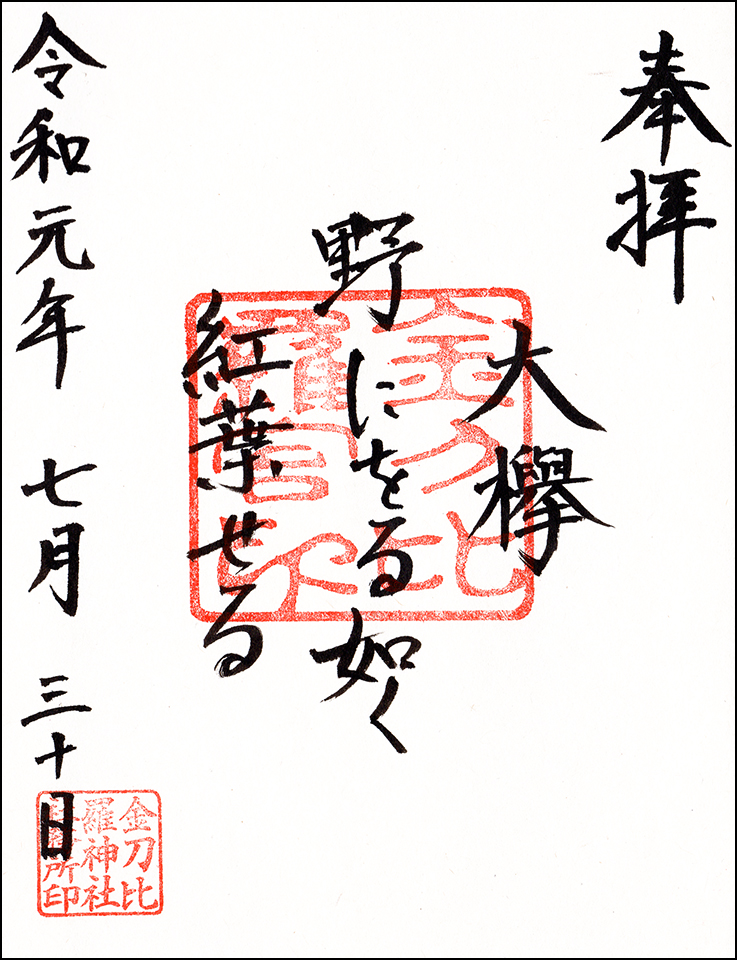 奉拝
大欅
野にをる如く
紅葉せる
令和元年 七月 三十日
金刀比
羅宮印
金刀比
羅神社
所印